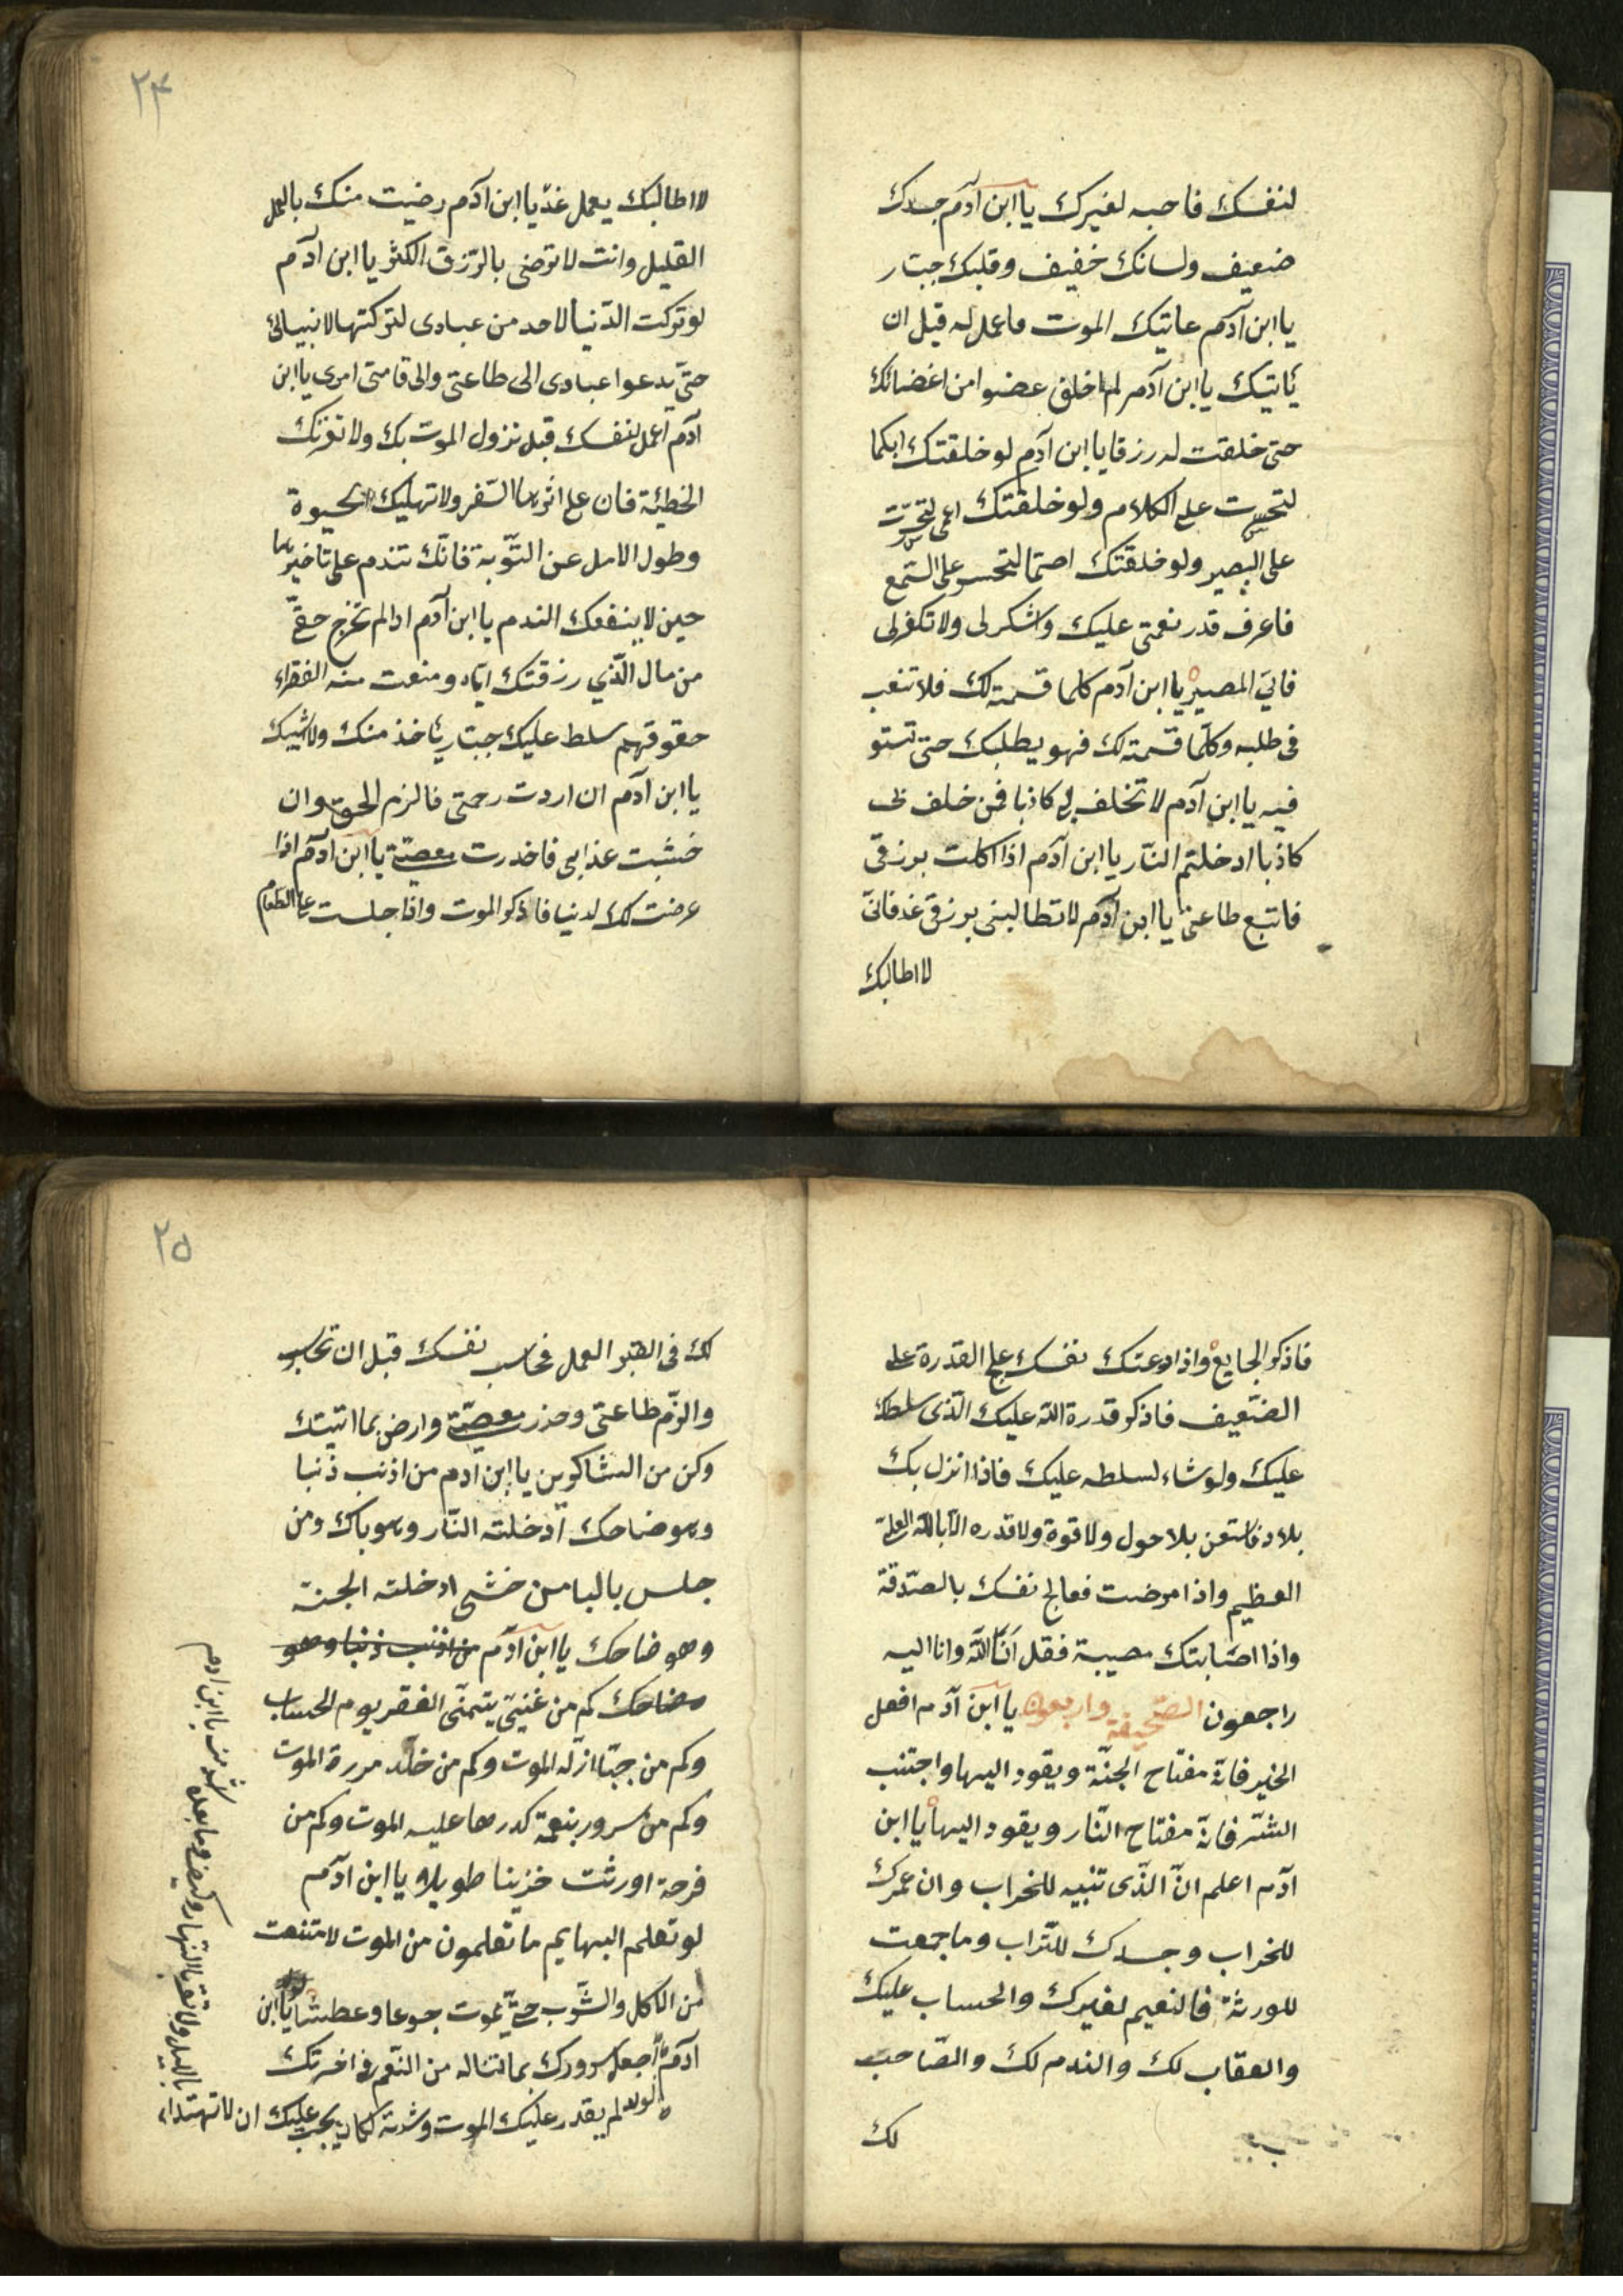 لنفسك فاحبه لغيرك يا ابن آدم جسدك
ضعيف ولسانك خفيف وقلبك جبار
يا ابن آدم عاتيك الموت فاعمل له قبل ان
يأتيك يا ابن آدم لم اخلق عضوا من اغضائك
حتى خلقت له رزقا يا ابن آدم لو خلقتك ابكما
لتحسرت على الكلام ولو خلقتك اعمى لتحسّرت
على البصير ولو خلقتك اصمّا لتحسر على السّمع
فاعرف قدر نعمتى عليك واشكر لى ولا تكفر لى
فاليّ المصير يا ابن آدم كلما قسمته لك فلا تتعب
فى طلبه وكلّما قسمته لك فهو يطلبك حتى تستو
فيه يا ابن آدم لا تخلف بى كاذبا فمن خلف بى
كاذبا ادخلتم النّار يا ابن آدم اذا اكلت برزقى
فاتبع طاعتى يا ابن آدم لا تطالبنى برزق غد فانّى
لا اطالبك
٢٤
لا اطالبك بعمل غدٍ يا ابن آدم رضيت منك بالعمل
القليل وانت لا ترضى بالرّزق الكثر يا ابن آدم
لو تركت الدّنيا لاحد من عبادى لتركتها لانبيائى
حتّى يدعوا عبادى الى طاعتى والى اقامتى امرى يا ابن
آدم اعمل لنفسك قبل نزول الموت بك ولا تغرّنك
الخطيئة فان على اثرها السّفر ولا تهليك الحيوة
وطول الامل عن التّوبة فانّك تندم على تأخيرها
حين لا ينفعك الندم يا ابن آدم اذا لم تخرج حقّى
من مال الّذي رزقتك ايّاه ومنعت منه الفقراء
حقوقهم سلط عليك جبّار يأخذ منك ولا اثيبك
يا ابن آدم ان اردت رحمتى فالزم الحق وان
خشيت عذابى فاحذرت معصيّة يا ابن آدم اذا
عرضت لك الدنيا فاذكر الموت واذا جلست على الطّعام
فاذكر الجايع واذا دعتك نفسك على القدرة على
الضّعيف فاذكر قدرة الله عليك الّذى سلطك
عليك ولو شاء لسلطه عليك فاذا انزل بك
بلاء فاستعن بلا حول ولا قوة ولا قدره الّا بالله العلىّ
العظيم واذا مرضت فعالج نفسك بالصّدقة
واذا اصابتك مصيبة فقل انّا لله وانا اليه
راجعون الصّحيفة واربعون يا ابن آدم افعل
الخير فانّه مفتاح الجنّة ويقود اليها واجتنب
الشّر فانّه مفتاح النّار ويقود اليها يا ابن
آدم اعلم انّ الّذى تبنيه للخراب وان عمرك
للخراب وجسدك للتّراب وما جمعت
للورثة فالنعيم لغيرك والحساب عليك
والعقاب لك والندم لك والصّاحب
لك
٢٥
لك فى القبر العمل فحاسب نفسك قبل ان تحاسب
والزّم طاعتى وحذر معصيّة وارض بما اتيتك
وكن من الشاكرين يا ابن آدم من اذنب ذنبا
وهو ضاحك ادخلته النّار وهو باك ومن
جلس باكيا من خشى ادخلته الجنة
وهو ضاحك يا ابن آدم من اذنب ذنبا وهو
ضاحك كم من غنيّ يتمنّى الفقر يوم الحساب
وكم من جبّار ازلّه الموت وكم من خالد مررة الموت
وكم من سرور بنعمة كدرها عليه الموت وكم من
فرحة اورثت خزينا طويلا يا ابن آدم
لو تعلم البهايم ما تعلمون من الموت لامتنعت
من الاكل والشّرب حتّى تموت جوعا وعطشا يا ابن
آدم اجعل سرورك بما تناله من النّعم فى اخرتك
لو لم يقدر عليك الموت وشدته لكان يجب عليك ان لا تهتداء
بالليل ولا تقر بالنهار وكيف وما بعده اشد منه يا ابن آدم